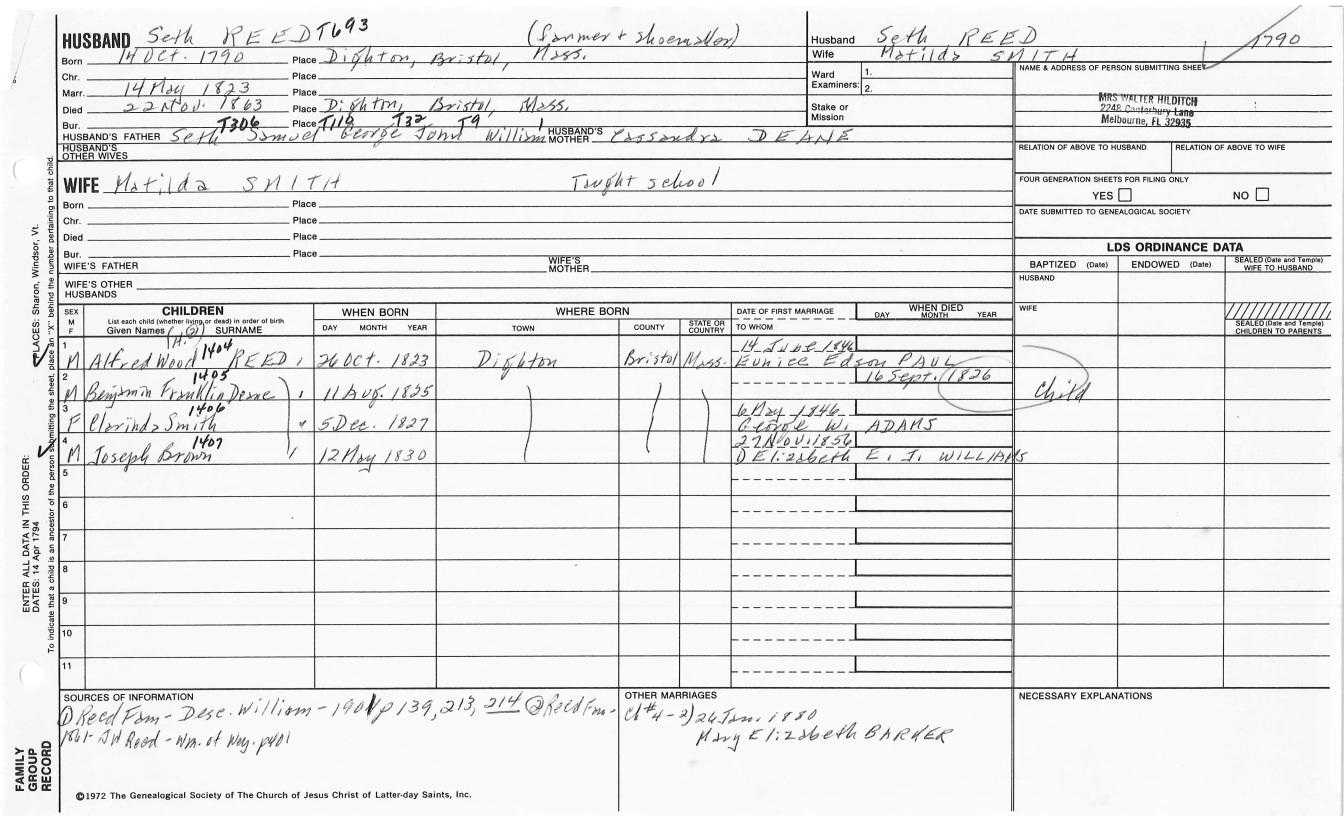 HUSBAND Seth REED T693 (farmer + shoemaker)
Born 14 Oct. 1790 Place Dighton, Bristol, Mass.
Chr. Place
Marr. 14 May 1823 Place
Died 22 Nov. 1863 Place Dighton, Bristol, Mass.
Bur. Place
T306 T116 T32 T9 1
HUSBAND'S FATHER Seth Samuel George John William HUSBAND'S MOTHER Cassandra DEANE
HUSBAND'S OTHER WIVES
Husband Seth REED 1790
Wife Matilda SMITH
Ward Examiners: 1.
2.
Stake or Mission
NAME & ADDRESS OF PERSON SUBMITTING SHEET
MRS WALTER HILDITCH
2248 Canterbury Lane
Melbourne, FL 32935
RELATION OF ABOVE TO HUSBAND RELATION OF ABOVE TO WIFE
FOUR GENERATION SHEETS FOR FILING ONLY
YES NO
DATE SUBMITTED TO GENEALOGICAL SOCIETY
WIFE Matilda SMITH Taught school
Born Place
Chr. Place
Died Place
Bur. Place
WIFE'S FATHER WIFE'S MOTHER
WIFE'S OTHER HUSBANDS
LDS ORDINANCE DATA
BAPTIZED (Date) ENDOWED (Date) SEALED (Date and Temple) WIFE TO HUSBAND
HUSBAND
WIFE
SEALED (Date and Temple) CHILDREN TO PARENTS
SEX M F
CHILDREN
List each child (whether living or dead) in order of birth
Given Names SURNAME
WHEN BORN
DAY MONTH YEAR
WHERE BORN
TOWN COUNTY STATE OR COUNTRY
DATE OF FIRST MARRIAGE
TO WHOM
WHEN DIED
DAY MONTH YEAR
1 14 June 1846
M Alfred Wood 1404 REED 26 Oct. 1823 Dighton Bristol Mass. Eunice Edson PAUL
2 1405 16 Sept. 1826 Child
M Benjamin Franklin Deane 11 Aug. 1825
3 1406 6 May 1846
F Clarinda Smith 5 Dec. 1827 George W. ADAMS
4 1407 27 Nov. 1856
M Joseph Brown 12 May 1830 Elizabeth E. J. WILLIAMS
5
6
7
8
9
10
11
SOURCES OF INFORMATION
① Reed Fam - Desc. William - 1901 p 139, 213, 214 ② Reed Fm -
1861 - JW Reed - Wm. of Wey. p401
OTHER MARRIAGES
Ch #4 - 2) 26 Jan. 1880
Mary Elizabeth BARKER
NECESSARY EXPLANATIONS
©1972 The Genealogical Society of The Church of Jesus Christ of Latter-day Saints, Inc.
FAMILY GROUP RECORD
ENTER ALL DATA IN THIS ORDER:
DATES: 14 Apr 1794
PLACES: Sharon, Windsor, Vt.
To indicate that a child is an ancestor of the person submitting the sheet, place an "X" behind the number pertaining to that child.